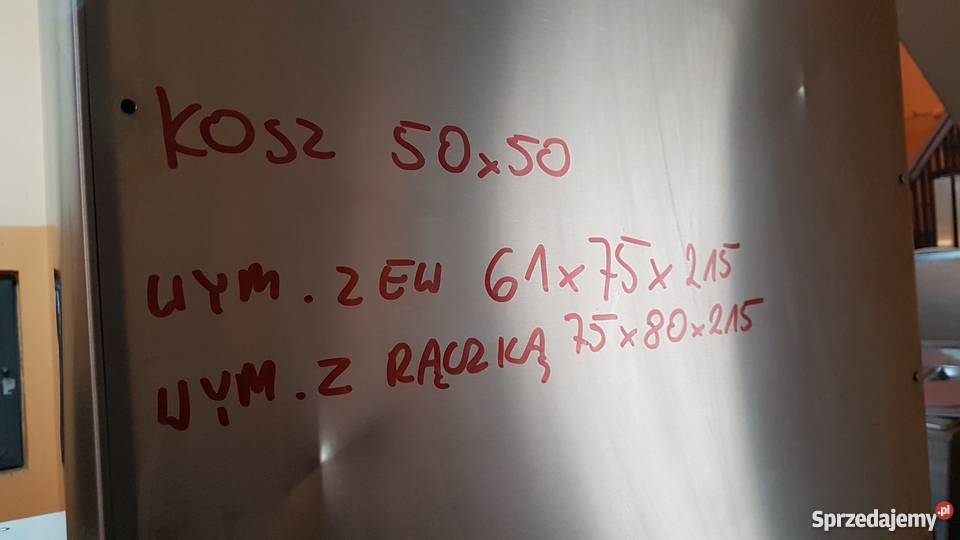 KOSZ 50x50
WYM. ZEW 61x75x215
WYM. Z RĄCZKĄ 75x80x215
Sprzedajemy.pl